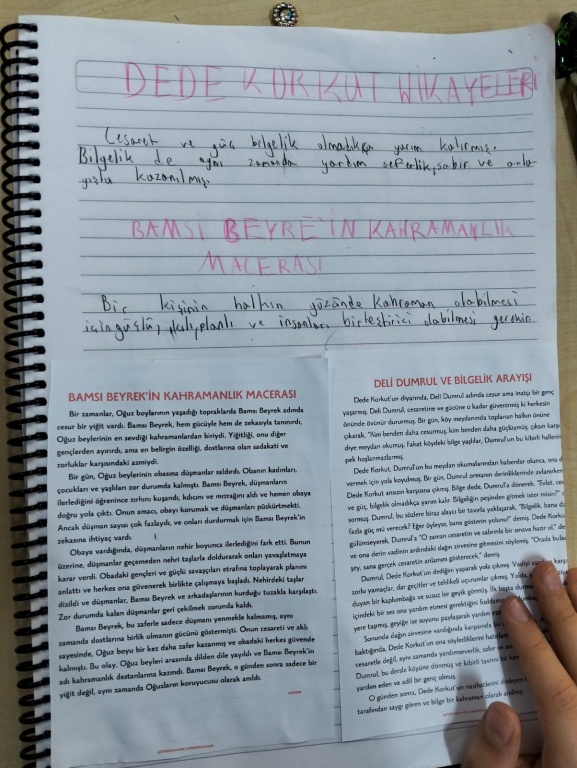 DEDE KORKUT HİKAYELERİ
Cesaret ve güç bilgelik olmadıkça yarım kalırmış.
Bilgelik de aynı zamanda yardım seferlik, sabır ve anla-
yışla kazanılmış.
BAMSI BEYRE'İN KAHRAMANLIK
MACERASI
Bir kişinin halkın gözünde kahraman olabilmesi
için güçlü, akıl, planlı ve insanları birleştirici olabilmesi gerekir.
BAMSI BEYREK'İN KAHRAMANLIK MACERASI
Bir zamanlar, Oğuz boylarının yaşadığı topraklarda Bamsı Beyrek adında
cesur bir yiğit vardı. Bamsı Beyrek, hem gücüyle hem de zekasıyla tanınırdı,
Oğuz beylerinin en sevdiği kahramanlardan biriydi. Yiğitliği, onu diğer
gençlerden ayırırdı, ama en belirgin özelliği, dostlarına olan sadakati ve
zorluklar karşısındaki azmiydi.
Bir gün, Oğuz beylerinin obasına düşmanlar saldırdı. Obanın kadınları,
çocukları ve yaşlıları zor durumda kalmıştı. Bamsı Beyrek, düşmanların
ilerlediğini öğrenince zırhını kuşandı, kılıcını ve mızrağını aldı ve hemen obaya
doğru yola çıktı. Onun amacı, obayı korumak ve düşmanları püskürtmekti.
Ancak düşman sayısı çok fazlaydı, ve onları durdurmak için Bamsı Beyrek'in
zekasına ihtiyaç vardı.
Obaya vardığında, düşmanların nehir boyunca ilerlediğini fark etti. Bunun
üzerine, düşmanlar geçemeden nehri taşlarla doldurarak onları yavaşlatmaya
karar verdi. Obadaki gençleri ve güçlü savaşçıları etrafına toplayarak planını
anlattı ve herkes ona güvenerek birlikte çalışmaya başladı. Nehirdeki taşlar
dizildi ve düşmanlar, Bamsı Beyrek ve arkadaşlarının kurduğu tuzakla karşılaştı.
Zor durumda kalan düşmanlar geri çekilmek zorunda kaldı.
Bamsı Beyrek, bu zaferle sadece düşmanı yenmekle kalmamış, aynı
zamanda dostlarına birlik olmanın gücünü göstermişti. Onun cesareti ve aklı
sayesinde, Oğuz boyu bir kez daha zafer kazanmış ve obadaki herkes güvende
kalmıştı. Bu olay, Oğuz beyleri arasında dilden dile yayıldı ve Bamsı Beyrek'in
adı kahramanlık destanlarına kazındı. Bamsı Beyrek, o günden sonra sadece bir
yiğit değil, aynı zamanda Oğuzların koruyucusu olarak anıldı.
DELİ DUMRUL VE BİLGELİK ARAYIŞI
Dede Korkut'un diyarında, Deli Dumrul adında cesur ama inatçı bir genç
yaşarmış. Deli Dumrul, cesaretine ve gücüne o kadar güvenirmiş ki herkesin
önünde övünür dururmuş. Bir gün, köy meydanında toplanan halkın önüne
çıkarak, "Kim benden daha cesurmuş, kim benden daha güçlüymüş, çıksın karşı
diye meydan okumuş. Fakat köydeki bilge yaşlılar, Dumrul'un bu kibirli hallerin
pek hoşlanmazlarmış.
Dede Korkut, Dumrul'un bu meydan okumalarından haberdar olunca, ona d
vermek için yola koyulmuş. Bir gün, Dumrul ormanın derinliklerinde avlanırken
Dede Korkut ansızın karşısına çıkmış. Bilge dede, Dumrul'a dönerek, "Evlat, ces
ve güç, bilgelik olmadıkça yarım kalır. Bilgeliğin peşinden gitmek ister misin?"
sormuş. Dumrul, bu sözlere biraz alaycı bir tavırla yaklaşarak, "Bilgelik, bana da
fazla güç mü verecek? Eğer öyleyse, bana gösterin yolunu!" demiş. Dede Korku
gülümseyerek, Dumrul'a "O zaman cesaretin ve sabrınla bir sınava hazır ol," de
ve ona derin vadinin ardındaki dağın zirvesine gitmesini söylemiş. "Orada bula
şey, sana gerçek cesaretin anlamını gösterecek," demiş.
Dumrul, Dede Korkut'un dediğini yaparak yola çıkmış.
zorlu yamaçlar, dar geçitler ve tehlikeli uçurumlar çıkmış.
duyan bir kaplumbağa ve susuz bir geyik görmüş. İlk başta
içindeki bir ses ona yardım etmesi gerektiğini
yere taşımış, geyiğe ise suyunu paylaşarak yardım
Sonunda dağın zirvesine vardığında karşısında
baktığında, Dede Korkut'un ona söylediklerini
cesaretle değil, aynı zamanda yardımseverlik, sabır ve
Dumrul, bu dersle köyüne dönmüş ve kibirli tavrını bir
yardım eden ve adil bir genç olmuş.
O günden sonra, Dede Korkut'un nasihatlerini dinleyen
tarafından saygı gören ve bilge bir kahraman olarak anılmış.